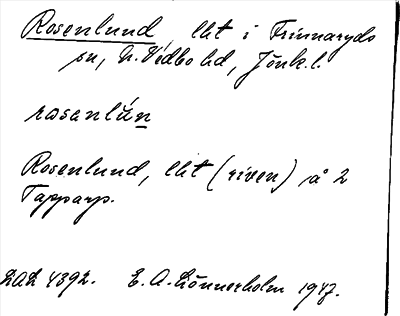 Rosenlund, lht i Frinnaryds
sn, N. Vedbo hd, Jönk. l.
rosenlún
Rosenlund, lht (riven) på 2
Tapparp.
LAL 4392. E. A. Lönnerholm 1947.